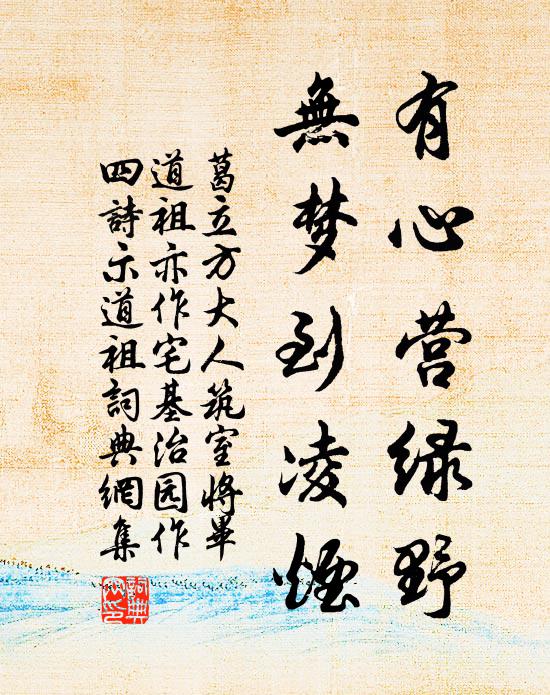 有心营绿野
無梦到凌煙
葛立方大人筑室将畢
道祖亦作宅基治园作
四詩示道祖詞典網集